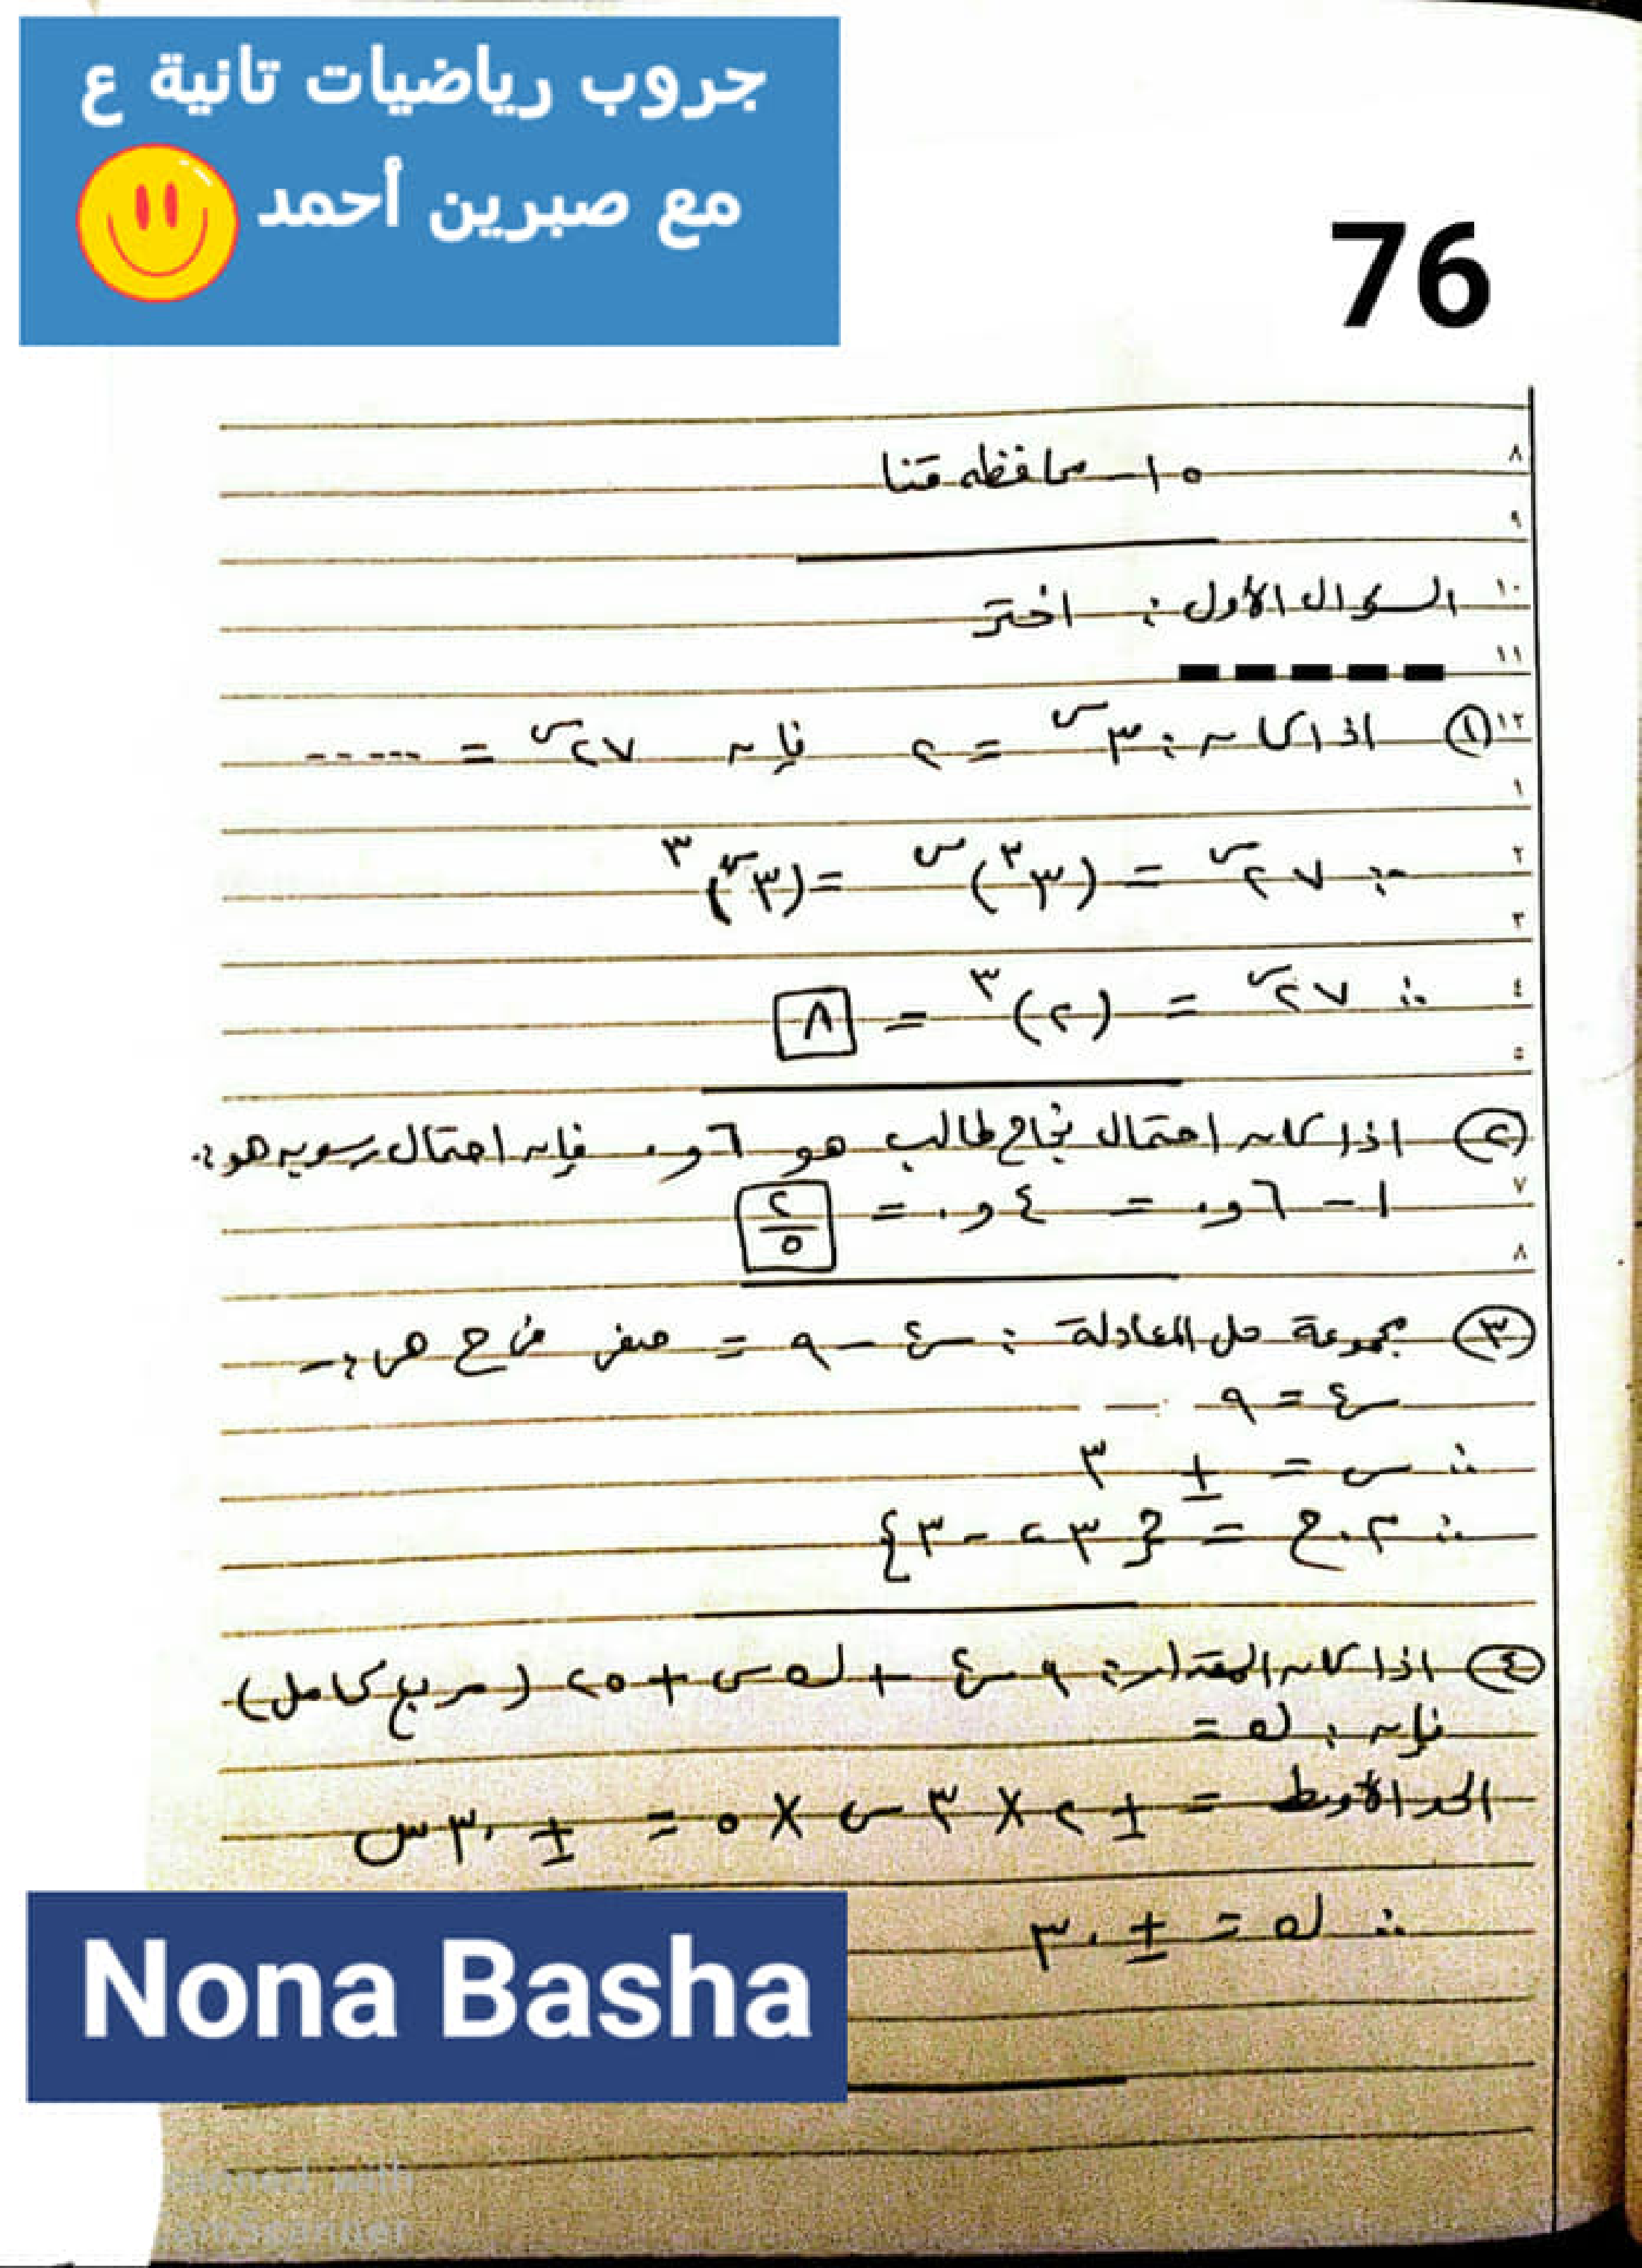 جروب رياضيات تانية ع
مع صبرين أحمد
76
١٥ - محافظه قنا
السؤال الأول : اختر
① اذا كان : ٣^س = ٢ فإن ٢٧^س = -----
∵ ٢٧^س = (٣^٣)^س = (٣^س)^٣
∴ ٢٧^س = (٢)^٣ = ٨
② اذا كان احتمال نجاح طالب هو ٦و٠ فإن احتمال رسوبه هو :
١ - ٦و٠ = ٤و٠ = ٢/٥
③ مجموعة حل المعادلة : س^٢ - ٩ = صفر في ح هى :-
س^٢ = ٩
∴ س = ± ٣
∴ م.ح = {٣ ، -٣}
④ اذا كان المقدار : ٩س^٢ + ك س + ٢٥ (مربع كامل)
فإن : ك =
الحد الأوسط = ± ٢ × ٣ س × ٥ = ± ٣٠ س
∴ ك = ± ٣٠
Nona Basha
٨
٩
١٠
١١
١٢
١
٢
٣
٤
٥
٧
٨